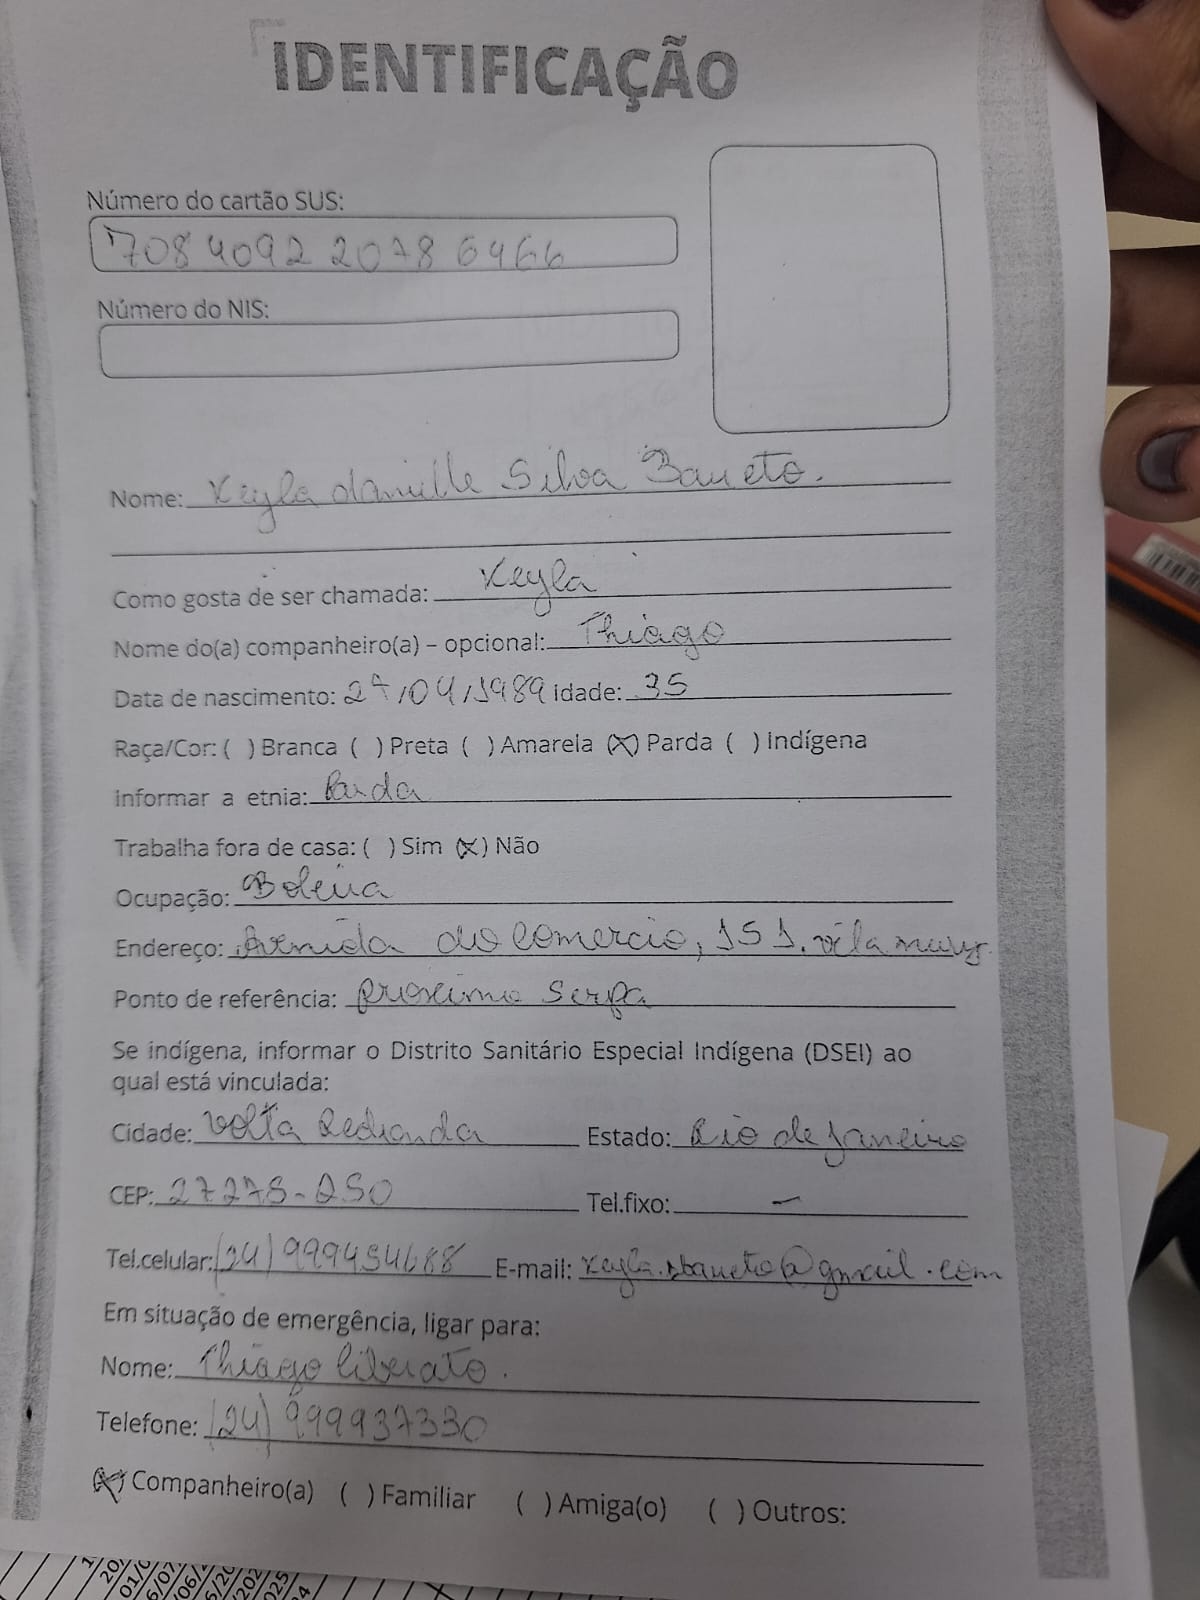 IDENTIFICAÇÃO
Número do cartão SUS:
708 4092 2078 6466
Número do NIS:
Nome: Keyla danielle Silva Barreto.
Como gosta de ser chamada: Keyla
Nome do(a) companheiro(a) – opcional: Thiago
Data de nascimento: 27/04/1989 idade: 35
Raça/Cor: ( ) Branca ( ) Preta ( ) Amarela (X) Parda ( ) Indígena
Informar a etnia: Parda
Trabalha fora de casa: ( ) Sim (X) Não
Ocupação: Boleira
Endereço: Avenida do Comercio, 151. vila mury.
Ponto de referência: proximo Serpa
Se indígena, informar o Distrito Sanitário Especial Indígena (DSEI) ao
qual está vinculada:
Cidade: Volta Redonda Estado: Rio de Janeiro
CEP: 27275-250 Tel.fixo: –
Tel.celular: (24) 999454688 E-mail: keyla.sbarreto@gmail.com
Em situação de emergência, ligar para:
Nome: Thiago liberato.
Telefone: (24) 999937330
(X) Companheiro(a) ( ) Familiar ( ) Amiga(o) ( ) Outros: